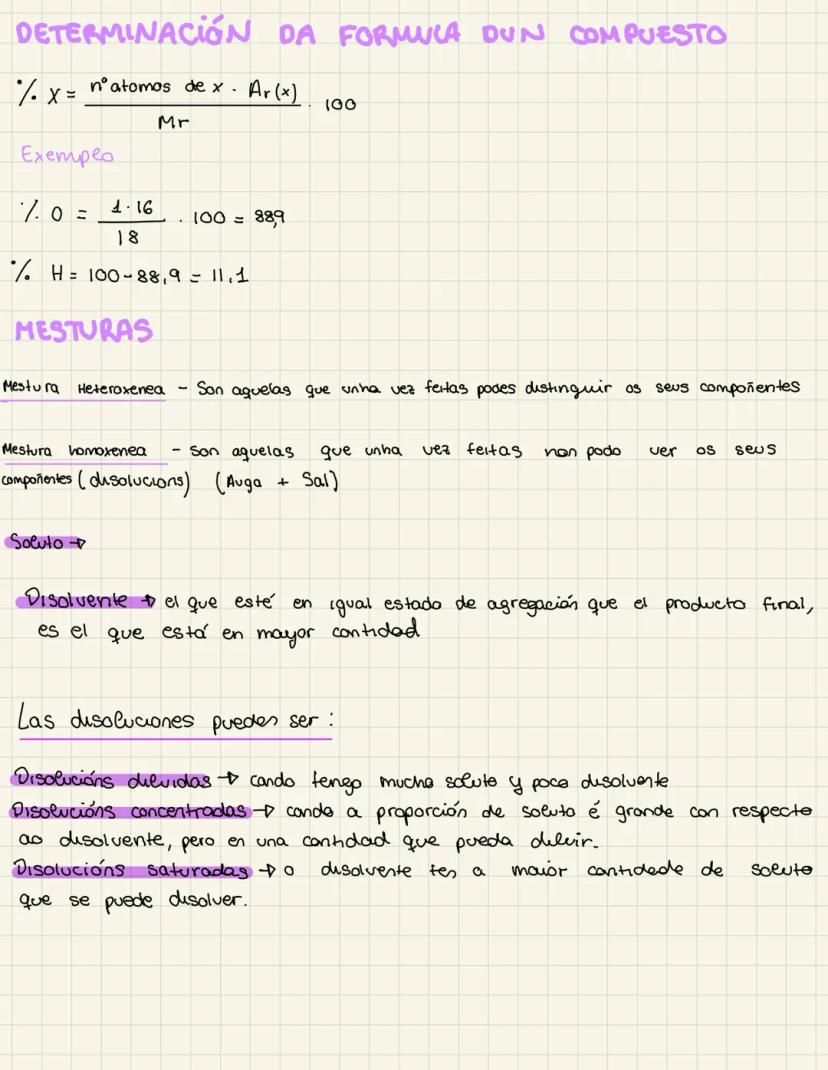 DETERMINACIÓN DA FORMULA DUN COMPUESTO
% X = nº atomos de x · Ar(x) / Mr · 100
Exemplo
% O = 1·16 / 18 · 100 = 88,9
% H = 100 - 88,9 = 11,1
MESTURAS
Mestura Heteroxenea - Son aquelas que unha vez feitas podes distinguir os seus compoñentes
Mestura homoxenea - Son aquelas que unha vez feitas non podo ver os seus
compoñentes (disolucions) (Auga + Sal)
Soluto →
Disolvente → el que esté en igual estado de agregación que el producto final,
es el que está en mayor cantidad
Las disoluciones pueden ser :
Disolucións diluidas → cando tengo mucho soluto y poco disolvente
Disolucións concentradas → cando a proporción de soluto é grande con respecto
ao disolvente, pero en una cantidad que pueda diluir.
Disolucións saturadas → o disolvente ten a maior cantidade de soluto
que se puede disolver.